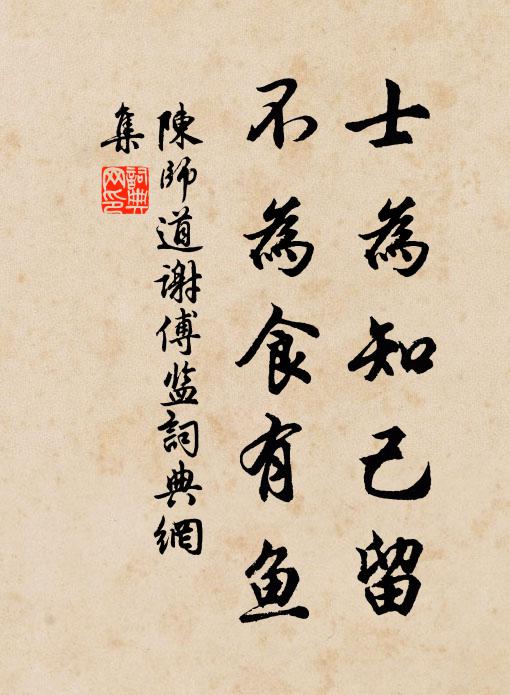 士為知己留
不為食有鱼
陳師道謝傅监詞典網
集
詞典
网印